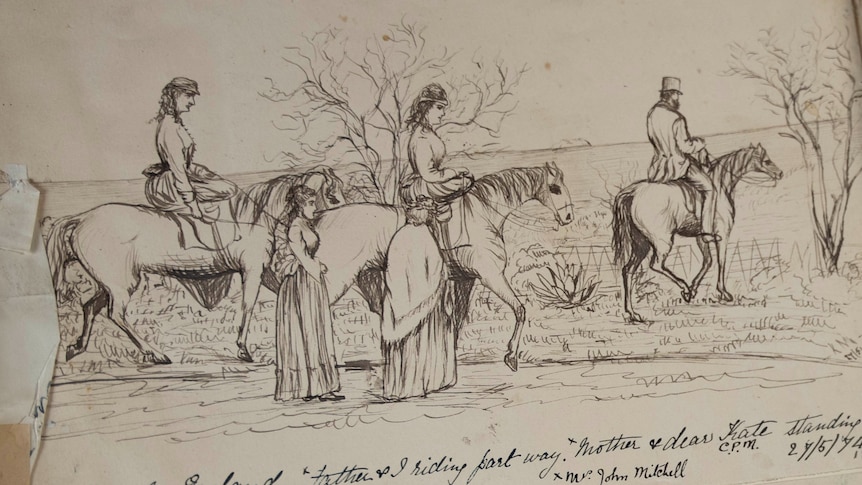 England. "Father & I riding part way." Mother & dear Kate standing
x Mr. John Mitchell C.P.M. 27/5/74